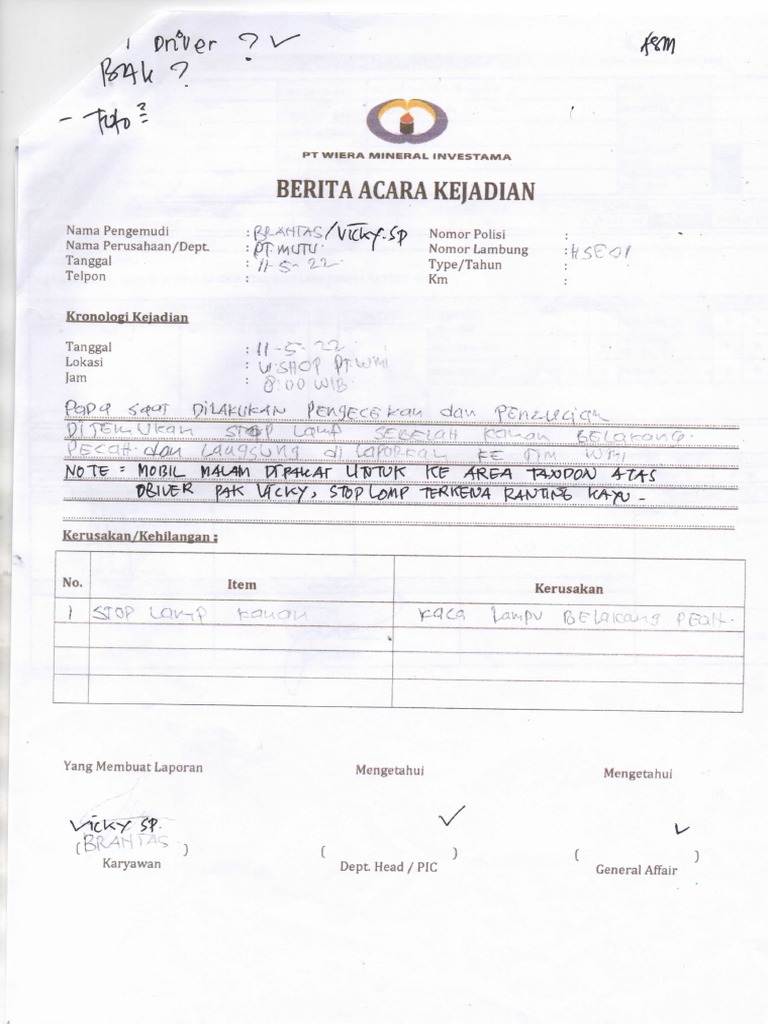 Driver ? ✓
BAK ?
- Foto ?
PT WIERA MINERAL INVESTAMA
BERITA ACARA KEJADIAN
Nama Pengemudi : BRANTAS/VICKY.SP Nomor Polisi :
Nama Perusahaan/Dept. : PT. MUTU Nomor Lambung : HSE01
Tanggal : 11-5-22 Type/Tahun :
Telpon : Km :
Kronologi Kejadian
Tanggal : 11-5-22
Lokasi : W.SHOP PT.WMI
Jam : 8:00 WIB
Pada saat DILAKUKAN PENGECEKAN dan PENCUCIAN
DITEMUKAN STOP LAMP SEBELAH KANAN BELAKANG
PECAH dan LANGSUNG di LAPORKAN KE TIM WMI
NOTE = MOBIL MALAM DIPAKAI UNTUK KE AREA TANDON ATAS
DRIVER PAK VICKY, STOP LOMP TERKENA RANTING KAYU -
Kerusakan/Kehilangan :
No. Item Kerusakan
1 STOP LAMP KANAN KACA LAMPU BELAKANG PECAH.
Yang Membuat Laporan Mengetahui Mengetahui
VICKY SP. ✓ ✓
(BRANTAS) ( ) ( )
Karyawan Dept. Head / PIC General Affair